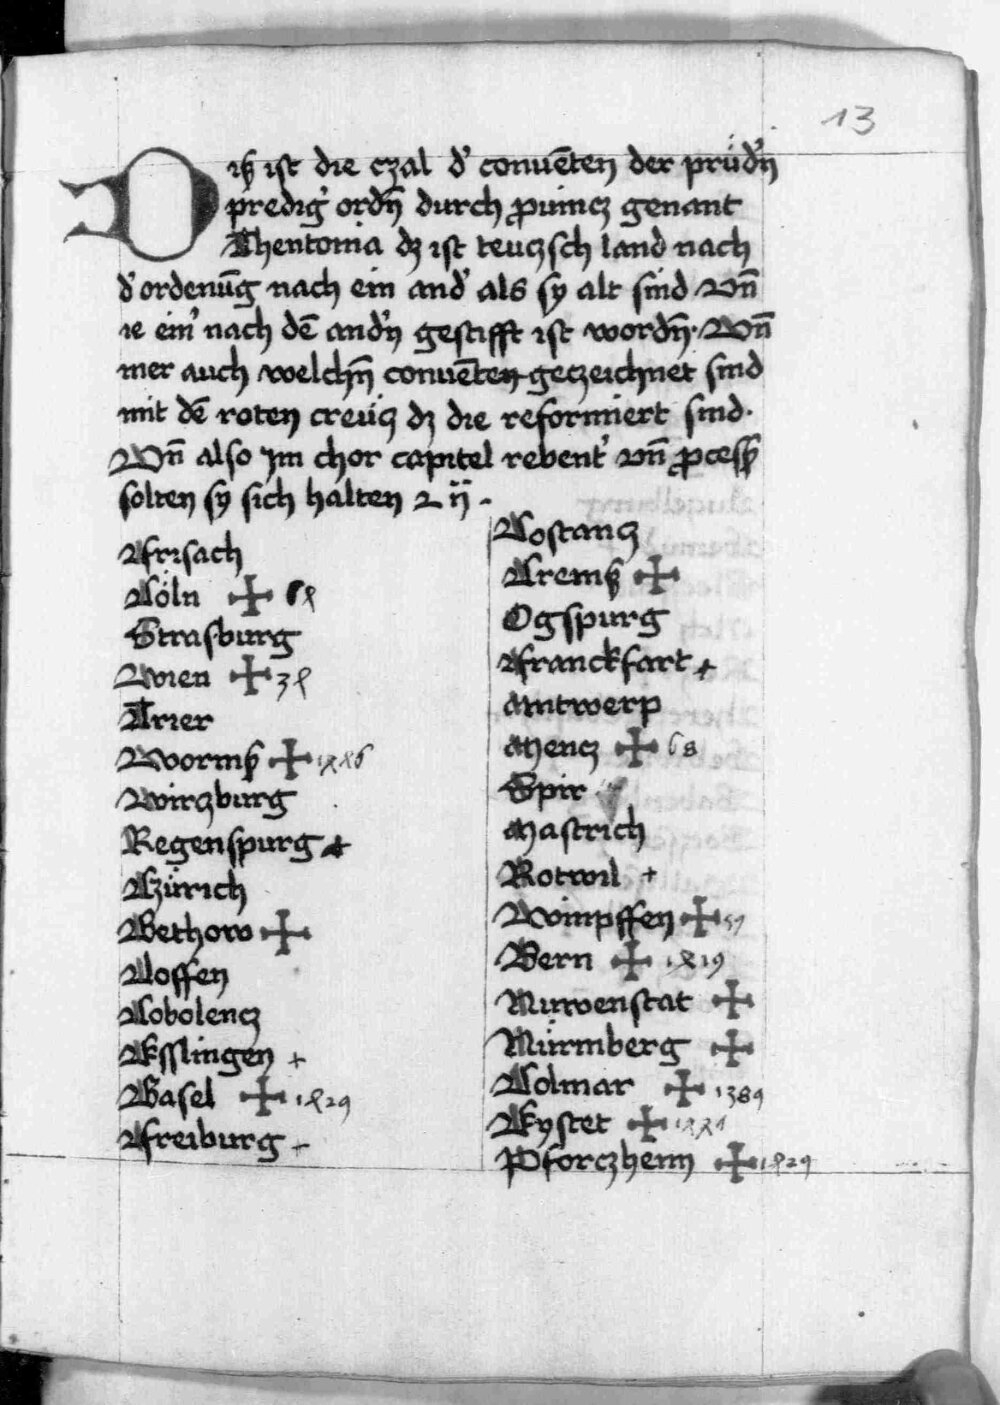 13
Diß ist die czal d' conuēten der prüd'n̄
predig' ordn̄ durch prouincz genant
Thentonia dz ist teuczsch land nach
d' ordenūg nach ein and' als sy alt sind Vn̄
ie ein' nach dē and'n gestifft ist wordn̄. Vn̄
mer auch welchn̄ conuēten geczeichnet sind
mit dē roten creücz dz die reformiert sind.
Vn̄ also Im chor capitel revent' vn̄ process
solten sy sich halten
Frisach
Cöln ✠
Strasburg
Wien ✠ 3
Trier
Wormß ✠
Wirczburg
Regenspurg +
Zürich
Bethow ✠
Coffen
Cobolencz
Esslingen +
Basel ✠ 1429
Freiburg +
Costancz
Cremß ✠
Ogspurg
Franckfart +
Antwerp
Mencz ✠ 68
Spir
Mastrich
Rotwil +
Wimpffen ✠ 51
Bern ✠ 1419
Nuwenstat ✠
Nürmberg ✠
Colmar ✠ 1389
Eystet ✠
Pforczhenn ✠ 1429